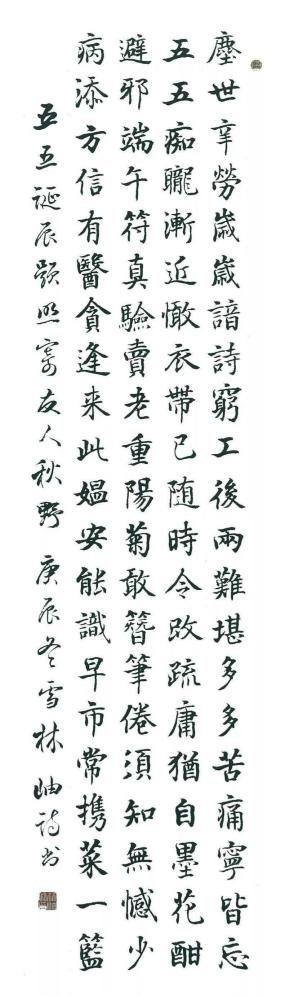 塵世辛勞歲歲諳詩窮工後兩難堪多多苦痛寧皆忘
五五痴矓漸近憨衣帶已随時令改疏庸猶自墨花酣
避邪端午符真驗賣老重陽菊敢簪筆倦須知無憾少
病添方信有醫貪逢来此媪安能識早市常携菜一籃
五五誕辰題照寄友人秋野 庚辰冬雪林岫詩書